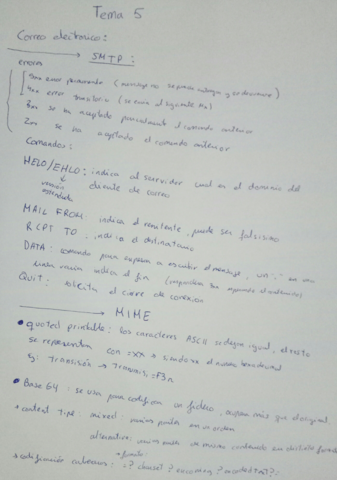 Tema 5
Correo electronico:
→ SMTP:
errores
5xx error permanente (mensaje no se puede entregar y es descartado)
4xx error transitorio
3xx se ha aceptado parcialmente el comando anterior
2xx se ha aceptado el comando anterior
Comandos:
HELO/EHLO: indica al servidor cual es el dominio del
versión extendida
cliente de correo
MAIL FROM indica el remitente, puede ser falsísimo
RCPT TO: indica el destinatario
DATA: comando para empezar a escribir el mensaje, un "." en una
linea vacia indica el fin
QUIT: solicita el cierre de conexion
→ MIME
• quoted printable: los caracteres ASCII se dejan igual, el resto
se representan con =XX siendo xx el numero hexadecimal
Ej: Transisión → Transisi=F3n
• Base 64: se usa para codificar un fichero, ocupa más que el original.
+ content type: mixed: varias partes en un orden
alternative: varias partes de mismo contenido en distinto formato
→ codificación cabeceras: =? charset? encoding? encoded text?=